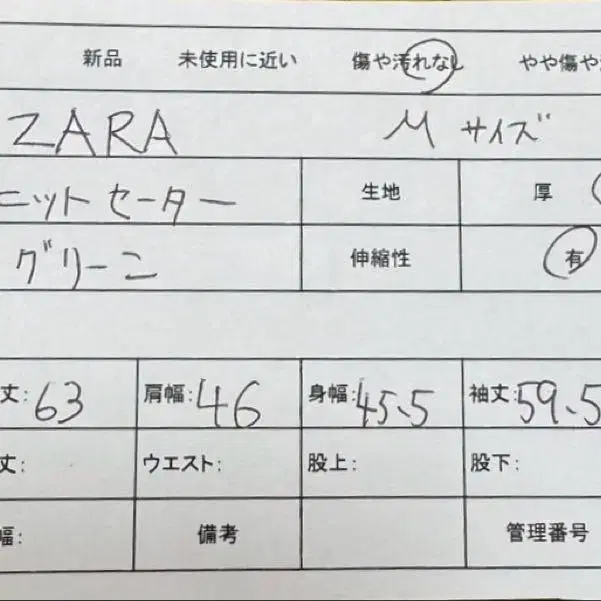 新品 未使用に近い 傷や汚れなし やや傷や
ZARA M サイズ
ニットセーター 生地 厚
グリーン 伸縮性 有
丈:63 肩幅:46 身幅:45.5 袖丈:59.5
丈: ウエスト: 股上: 股下:
幅: 備考 管理番号